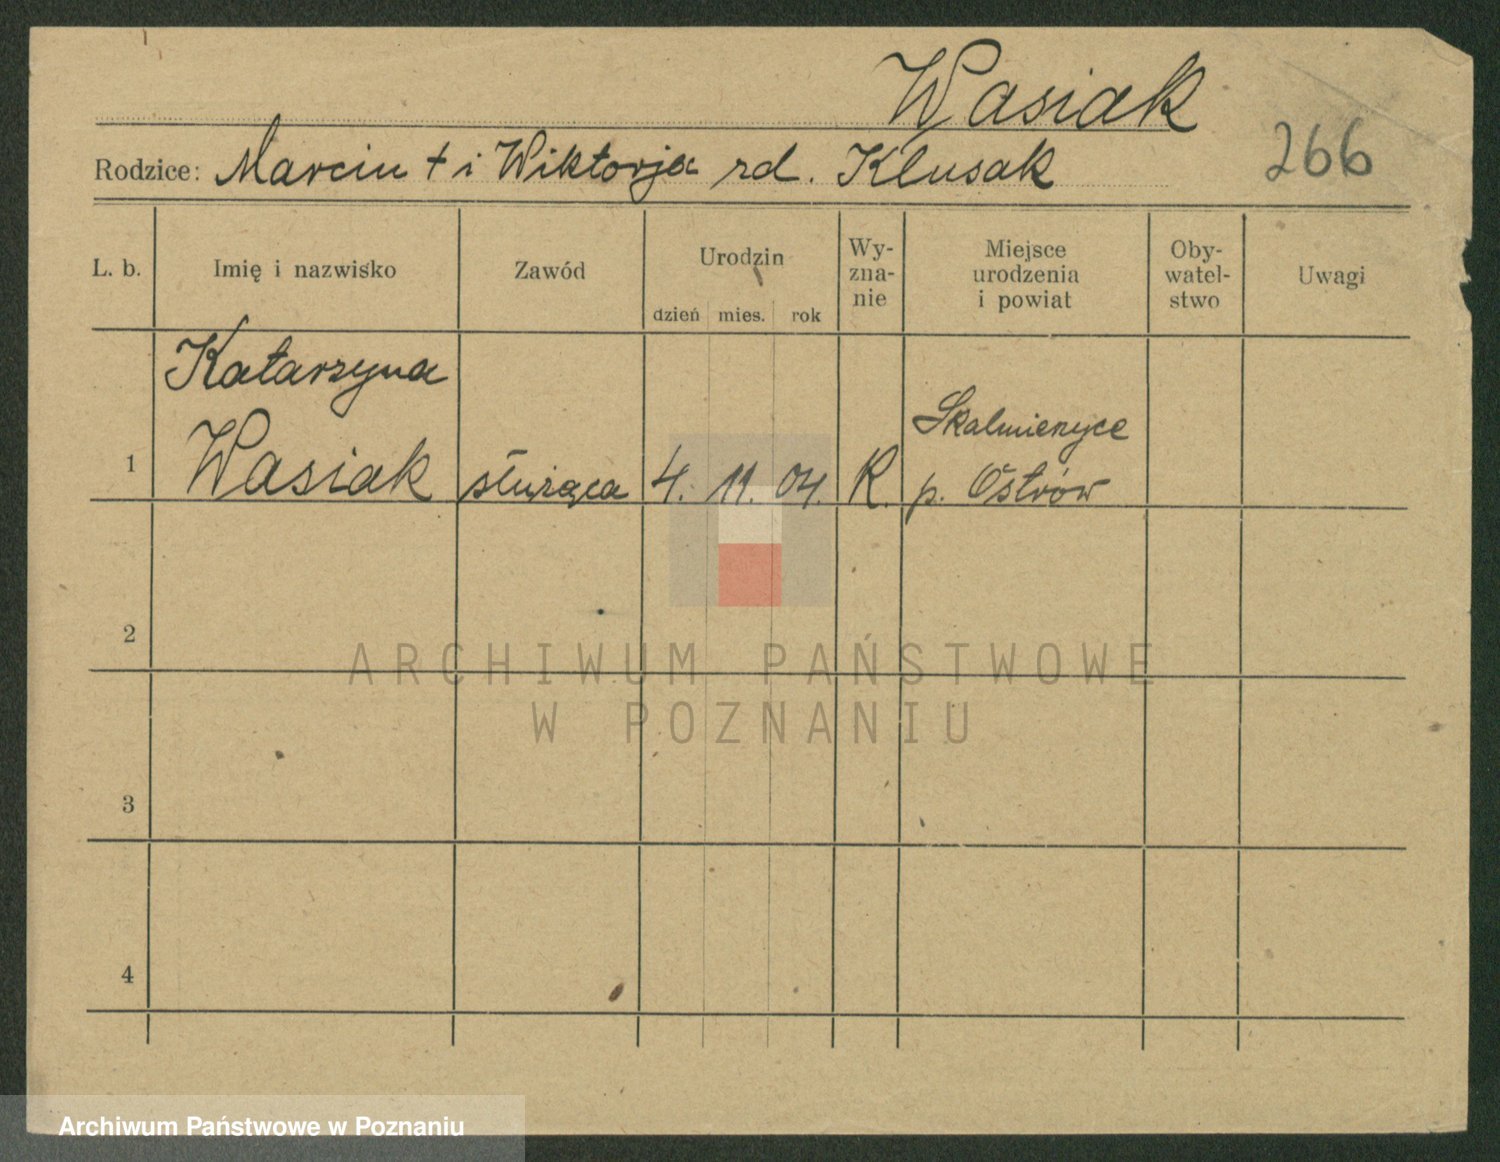 Wasiak
Rodzice: Marcin + i Wiktorja rd. Klusak
266
L. b.
Imię i nazwisko
Zawód
Urodzin
dzień mies. rok
Wy-
zna-
nie
Miejsce
urodzenia
i powiat
Oby-
watel-
stwo
Uwagi
1
Katarzyna
Wasiak
służąca
4. 11. 04.
R.
Skalmierzyce
p. Ostrów
2
3
4
ARCHIWUM PAŃSTWOWE
W POZNANIU
Archiwum Państwowe w Poznaniu